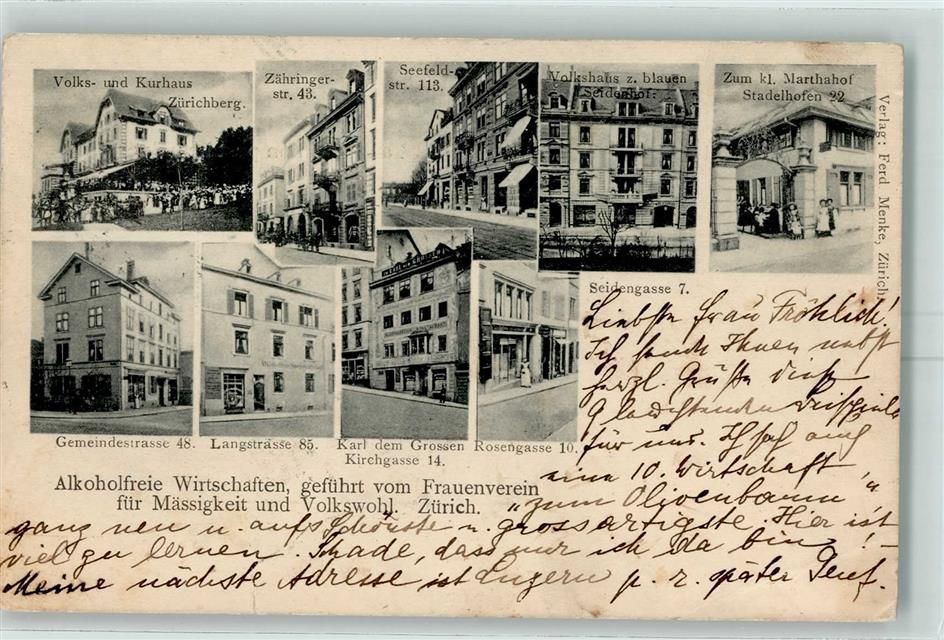 Volks- und Kurhaus
Zürichberg.
Zähringer-
str. 43.
Seefeld-
str. 113.
Volkshaus z. blauen
Seidenhof.
Zum kl. Marthahof
Stadelhofen 22
Verlag: Ferd Menke, Zürich.
Seidengasse 7.
Gemeindestrasse 48.
Langstrasse 85.
Karl dem Grossen
Kirchgasse 14.
Rosengasse 10.
Alkoholfreie Wirtschaften, geführt vom Frauenverein
für Mässigkeit und Volkswohl. Zürich.
Liebste Frau Fröhlich!
Ich sende Ihnen nebst
herzl. Grüße diese
leuchtenden Beispiele
für uns. Ich sah auch
eine 10. Wirtschaft
"zum Olivenbaum"
ganz neu u. aufs Schönste u. grossartigste. Hier ist
viel zu lernen. Schade, dass nur ich da bin!
Meine nächste Adresse ist Luzern p. r. später Genf.